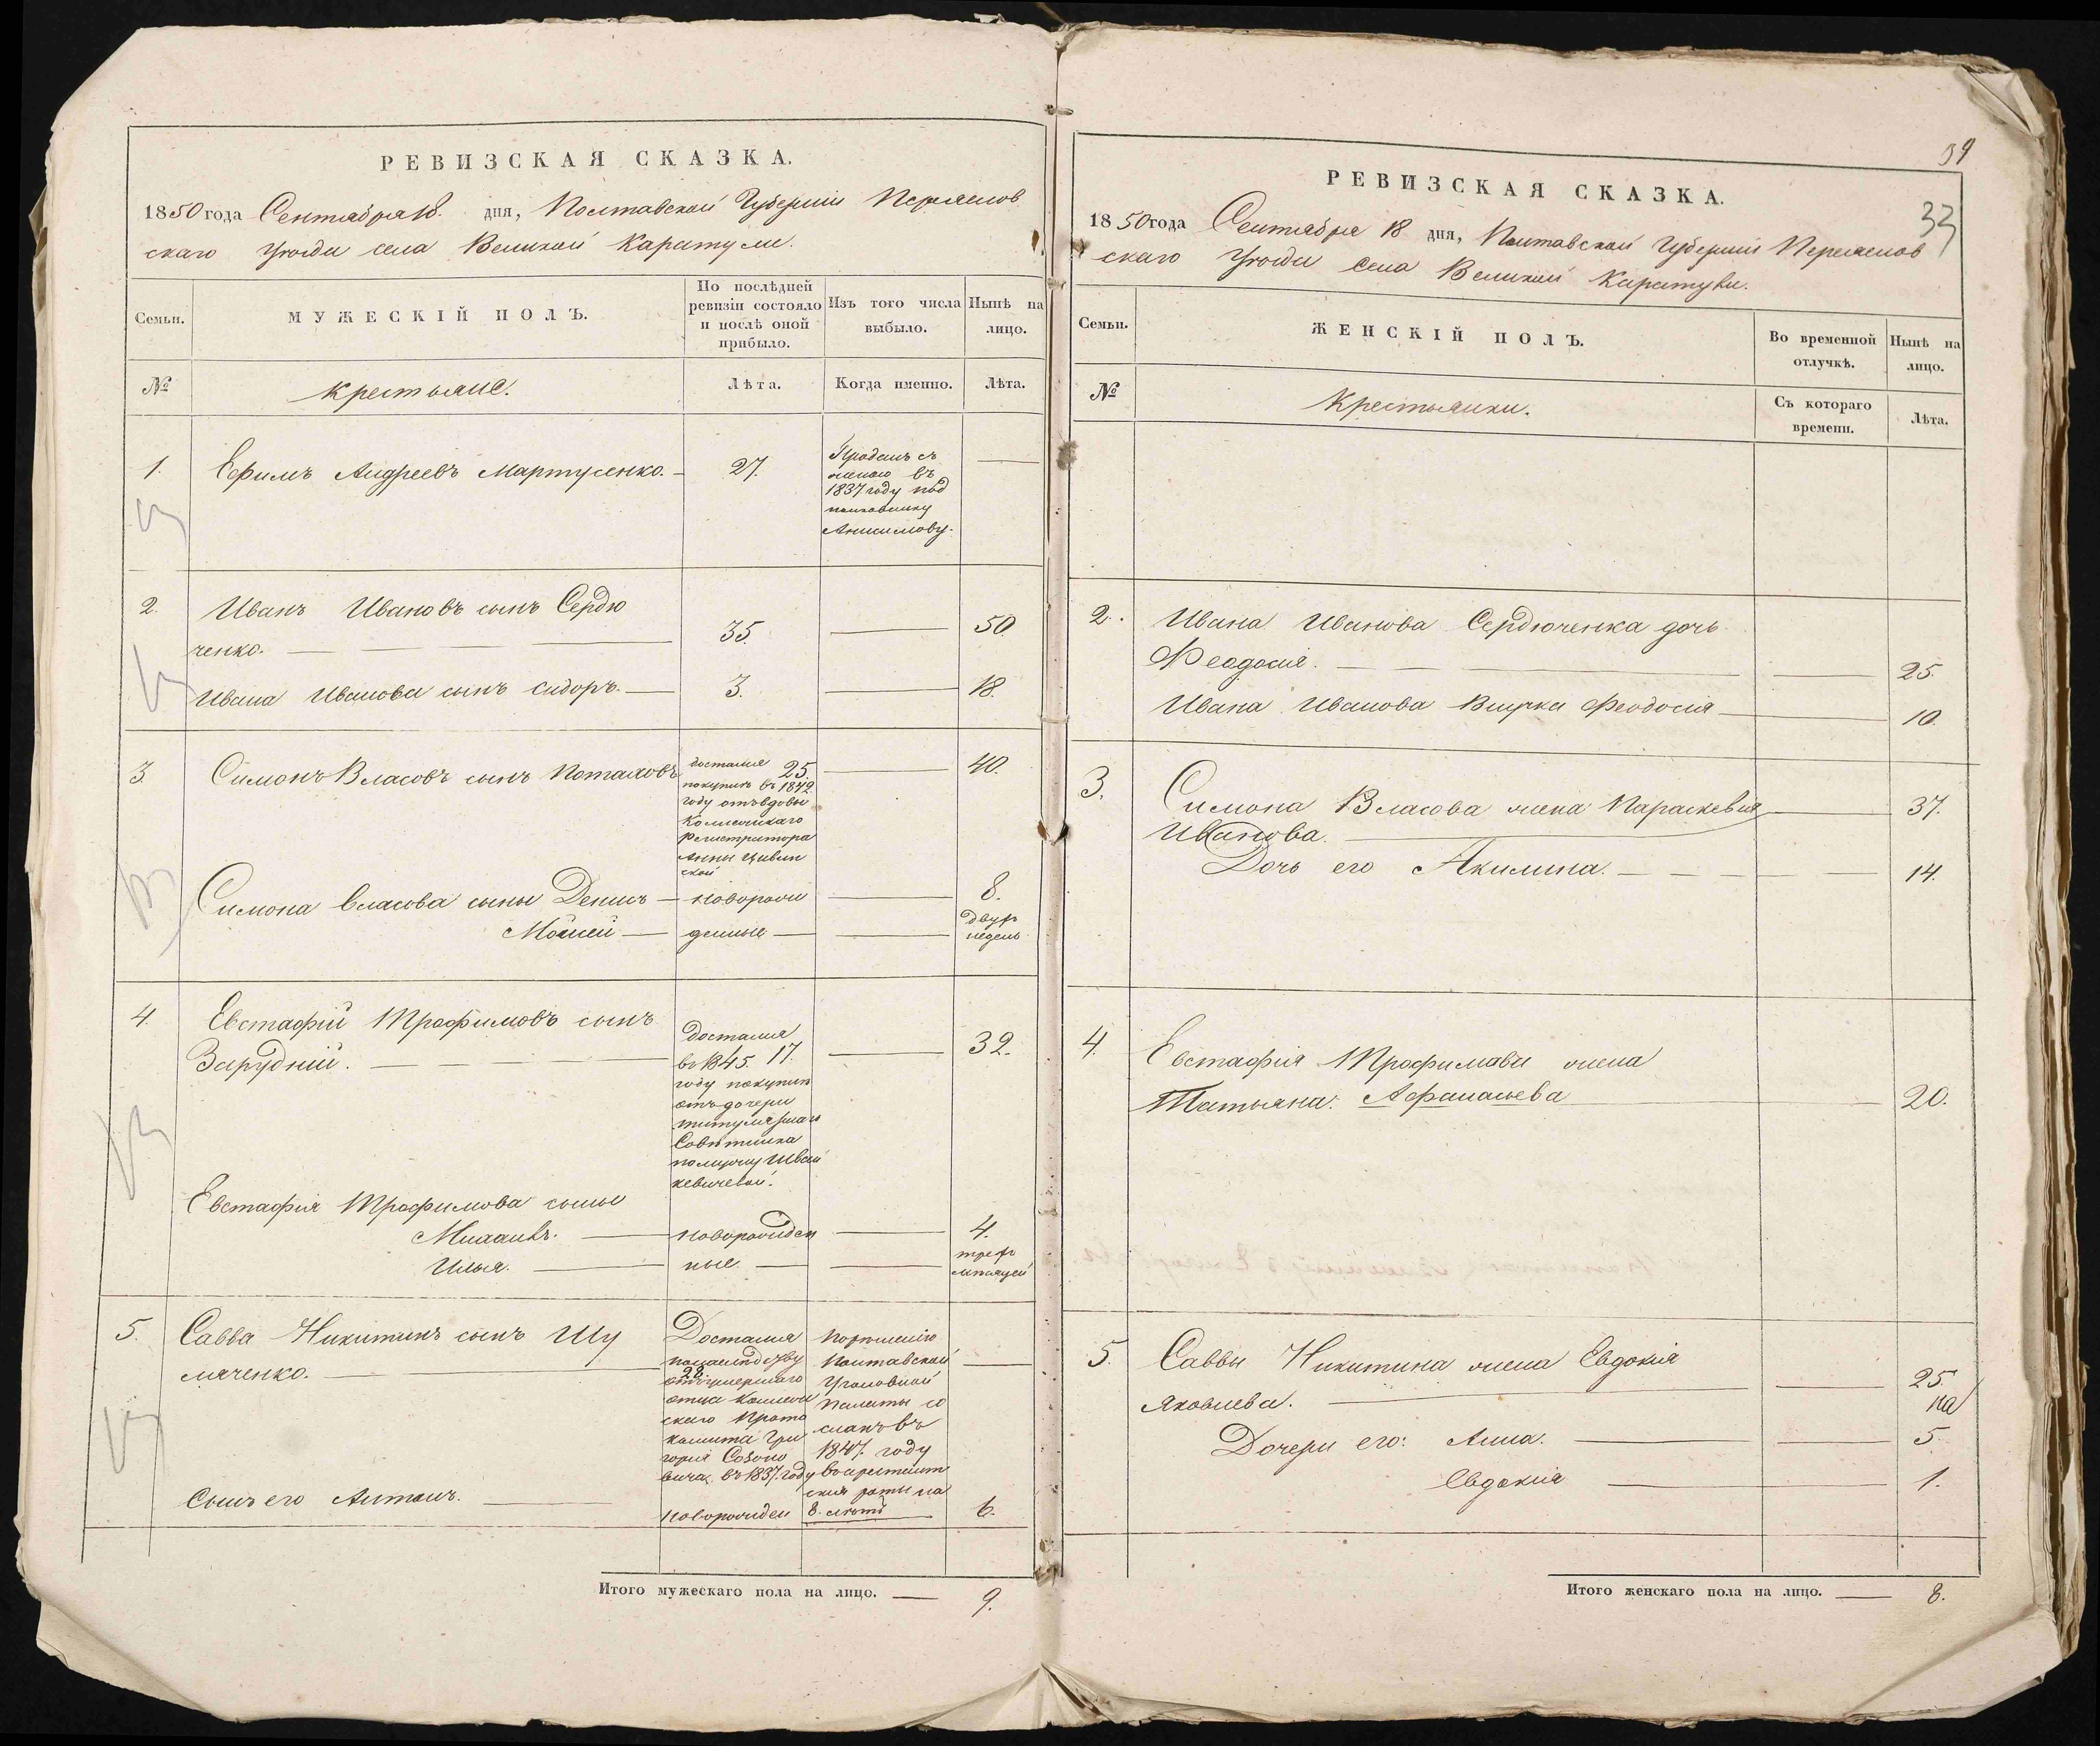 РЕВИЗСКАЯ СКАЗКА.
1850 года Сентября 18. дня, Полтавской Губерніи Переяслов
скаго Уѣзда села Великой Каратули.
Семьи.
МУЖЕСКІЙ ПОЛЪ.
По послѣдней
ревизіи состояло
и послѣ оной
прибыло.
Изъ того числа
выбыло.
Нынѣ на
лицо.
№
крестьяне.
Лѣта.
Когда именно.
Лѣта.
1.
Ефимъ Андреевъ Мартусенко.
27.
Проданъ съ
женою въ
1837 году под
полковнику
Анисимову.
2.
Иванъ Ивановъ сынъ Сердю
ченко.
35.
50.
Ивана Иванова сынъ Сидоръ.
3.
18.
3.
Симонъ Власовъ сынъ Потаповъ
достался 25.
покупкою въ 1842
году отъ вдовы
Коллежскаго
Регистратора
Анны
ской
40.
Симона Власова сыны Денисъ
новорож
8.
Мойсей
денные
двухъ
недель
4.
Евстафій Трофимовъ сынъ
Зарудній.
достался
въ 1845. 17.
году покупкою
отъ дочери
титулярнаго
Совѣтника
кевичевой.
32.
Евстафія Трофимова сыны
Михаилъ.
новорожден
4.
Илья.
ные
трехъ
мѣсяцей
5.
Савва Никитинъ сынъ Шу
ляченко.
Достался
по наслѣдству
28
отъ умершаго
отца Коллеж
скаго
Гри
горія
вича въ 1837. году
По рѣшенію
Полтавской
Уголовной
Палаты со
сланъ въ
1847. году
въ арестант
скія роты на
8. лѣтъ
Сынъ его Антонъ.
новорожден
6.
Итого мужескаго пола на лицо. 9.
39
33
РЕВИЗСКАЯ СКАЗКА.
1850 года Сентября 18 дня, Полтавской Губерніи Переяслов
скаго Уѣзда Села Великой Каратули.
Семьи.
ЖЕНСКІЙ ПОЛЪ.
Во временной
отлучкѣ.
Нынѣ на
лицо.
№
Крестьянки.
Съ котораго
времени.
Лѣта.
2.
Ивана Иванова Сердюченка дочь
Феодосія.
25.
Ивана Иванова Внучка Феодосія
10.
3.
Симона Власова жена Параскевія
37.
Иванова.
Дочь его Акилина.
14.
4.
Евстафія Трофимова жена
Татьяна Афанасьева
20.
5.
Саввы Никитина жена Евдокія
25.
Яковлева.
Дочери его: Анна.
5
Евдокія
1.
Итого женскаго пола на лицо. 8.